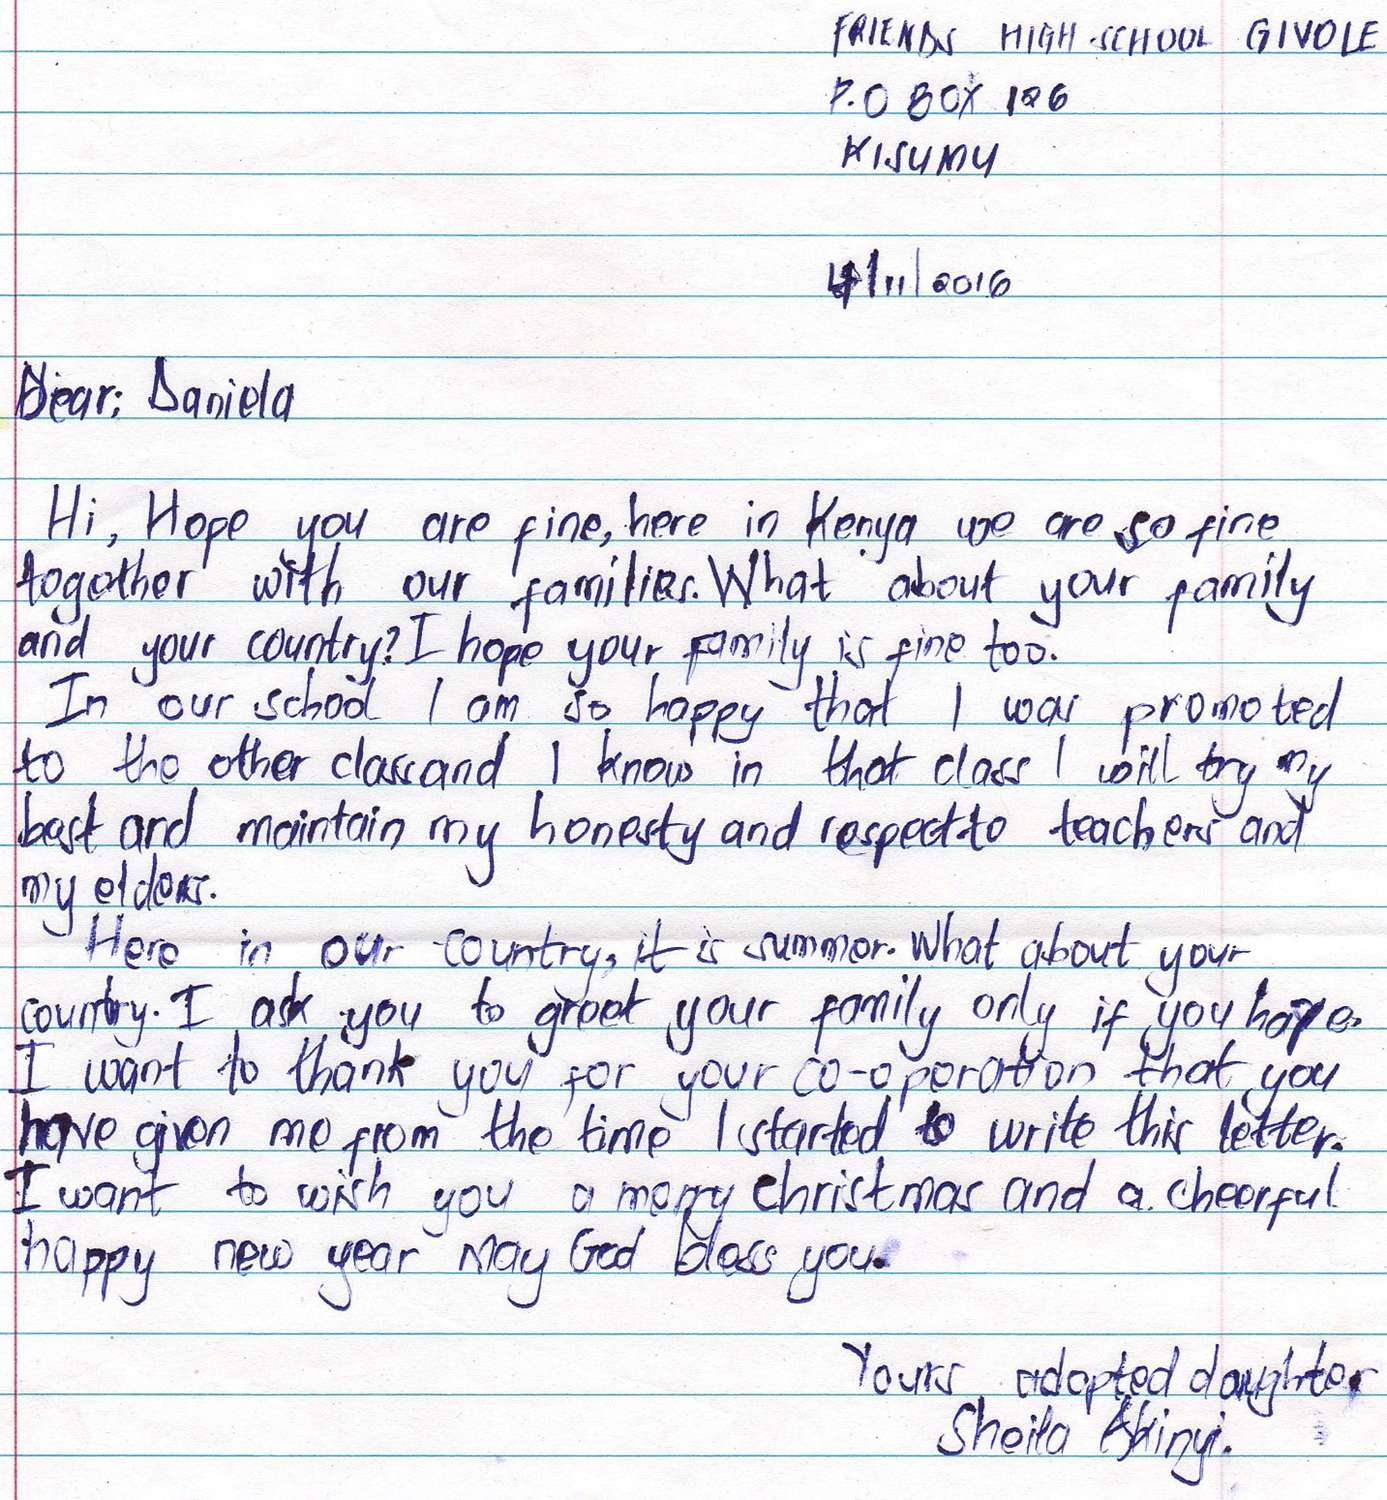 FRIENDS HIGH SCHOOL GIVOLE
P.O BOX 126
KISUMU
4/11/2016
Dear: Daniela
Hi, Hope you are fine, here in Kenya we are so fine
together with our families. What about your family
and your country? I hope your family is fine too.
In our school I am so happy that I was promoted
to the other class and I know in that class I will try my
best and maintain my honesty and respect to teachers and
my elders.
Here in our country, it is summer. What about your
country. I ask you to greet your family only if you have.
I want to thank you for your co-operation that you
have given me from the time I started to write this letter.
I want to wish you a merry christmas and a cheerful
happy new year May God bless you.
Yours adopted daughter
Sheila Akinyi.